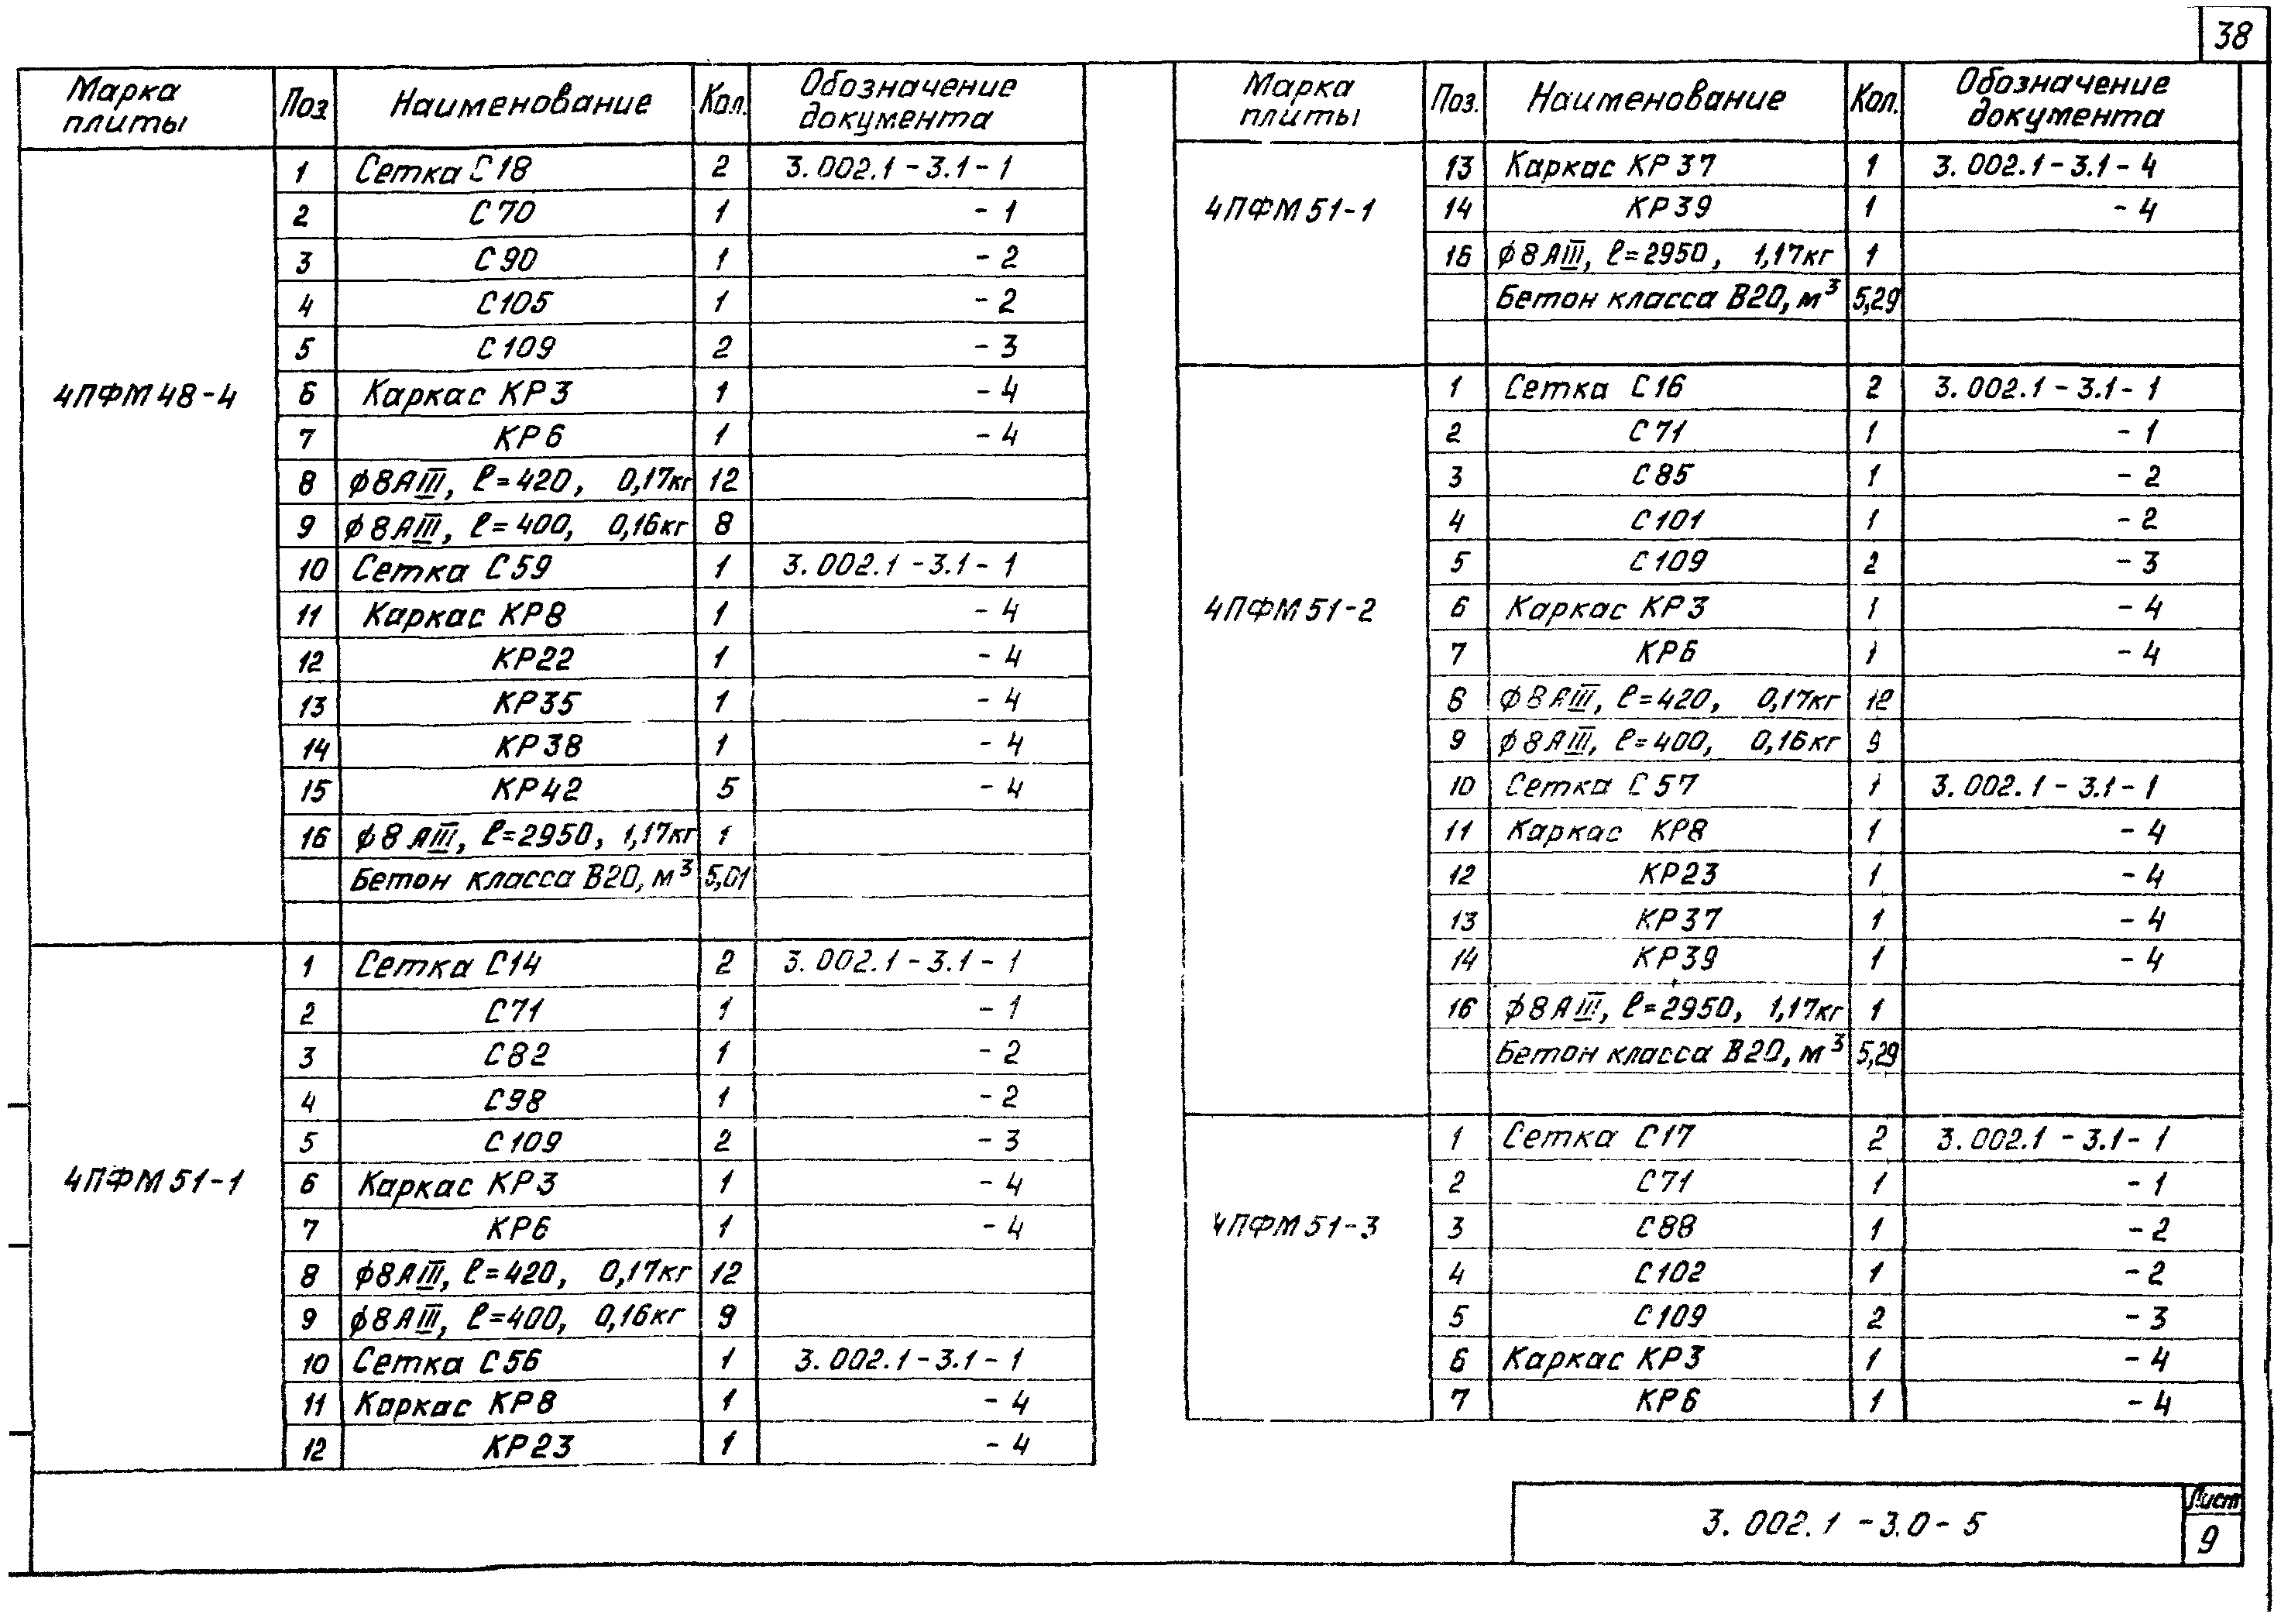 38
Марка плиты Поз. Наименование Кол. Обозначение документа
1 Сетка С18 2 3.002.1-3.1-1
2 С70 1 -1
3 С90 1 -2
4 С105 1 -2
5 С109 2 -3
4ПФМ48-4 6 Каркас КР3 1 -4
7 КР6 1 -4
8 ϕ8АIII, ℓ=420, 0,17кг 12
9 ϕ8АIII, ℓ=400, 0,16кг 8
10 Сетка С59 1 3.002.1-3.1-1
11 Каркас КР8 1 -4
12 КР22 1 -4
13 КР35 1 -4
14 КР38 1 -4
15 КР42 5 -4
16 ϕ8АIII, ℓ=2950, 1,17кг 1
Бетон класса В20, м³ 5,01
1 Сетка С14 2 3.002.1-3.1-1
2 С71 1 -1
3 С82 1 -2
4 С98 1 -2
5 С109 2 -3
4ПФМ51-1 6 Каркас КР3 1 -4
7 КР6 1 -4
8 ϕ8АIII, ℓ=420, 0,17кг 12
9 ϕ8АIII, ℓ=400, 0,16кг 9
10 Сетка С56 1 3.002.1-3.1-1
11 Каркас КР8 1 -4
12 КР23 1 -4
Марка плиты Поз. Наименование Кол. Обозначение документа
13 Каркас КР37 1 3.002.1-3.1-4
4ПФМ51-1 14 КР39 1 -4
16 ϕ8АIII, ℓ=2950, 1,17кг 1
Бетон класса В20, м³ 5,29
1 Сетка С16 2 3.002.1-3.1-1
2 С71 1 -1
3 С85 1 -2
4 С101 1 -2
5 С109 2 -3
4ПФМ51-2 6 Каркас КР3 1 -4
7 КР6 1 -4
8 ϕ8АIII, ℓ=420, 0,17кг 12
9 ϕ8АIII, ℓ=400, 0,16кг 9
10 Сетка С57 1 3.002.1-3.1-1
11 Каркас КР8 1 -4
12 КР23 1 -4
13 КР37 1 -4
14 КР39 1 -4
16 ϕ8АIII, ℓ=2950, 1,17кг 1
Бетон класса В20, м³ 5,29
1 Сетка С17 2 3.002.1-3.1-1
2 С71 1 -1
4ПФМ51-3 3 С88 1 -2
4 С102 1 -2
5 С109 2 -3
6 Каркас КР3 1 -4
7 КР6 1 -4
3.002.1-3.0-5
Лист
9